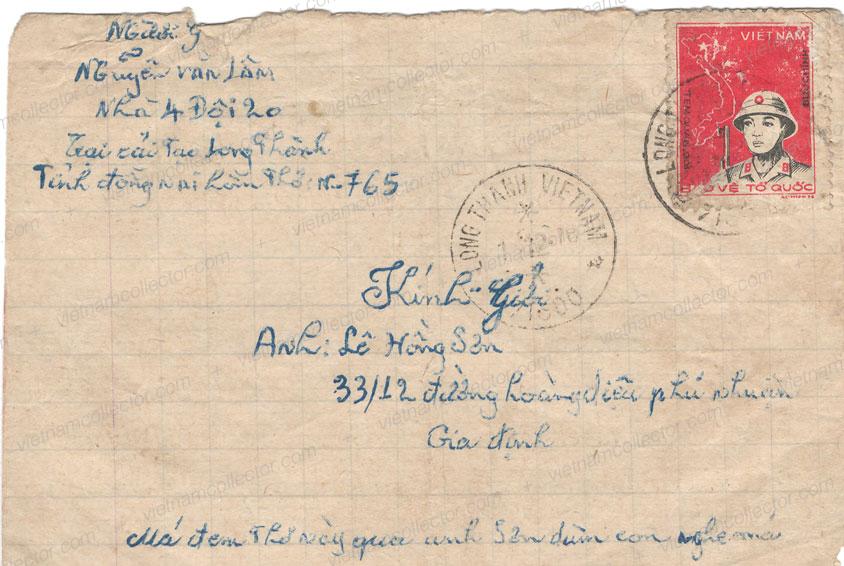 Người gởi
Nguyễn văn Lầm
Nhà 4 Đội 20
Trại cải Tạo Long Thành
Tỉnh đồng nai hòm Thơ: N-765
VIỆT NAM
BẢO VỆ TỔ QUỐC
LONG THANH VIETNAM
Kính Gởi
Anh: Lê Hồng Sơn
33/12 đường hoàng diệu phú nhuận
Gia định
Má đem Thơ này qua anh Sơn dùm con nghe má
vietnamcollector.com